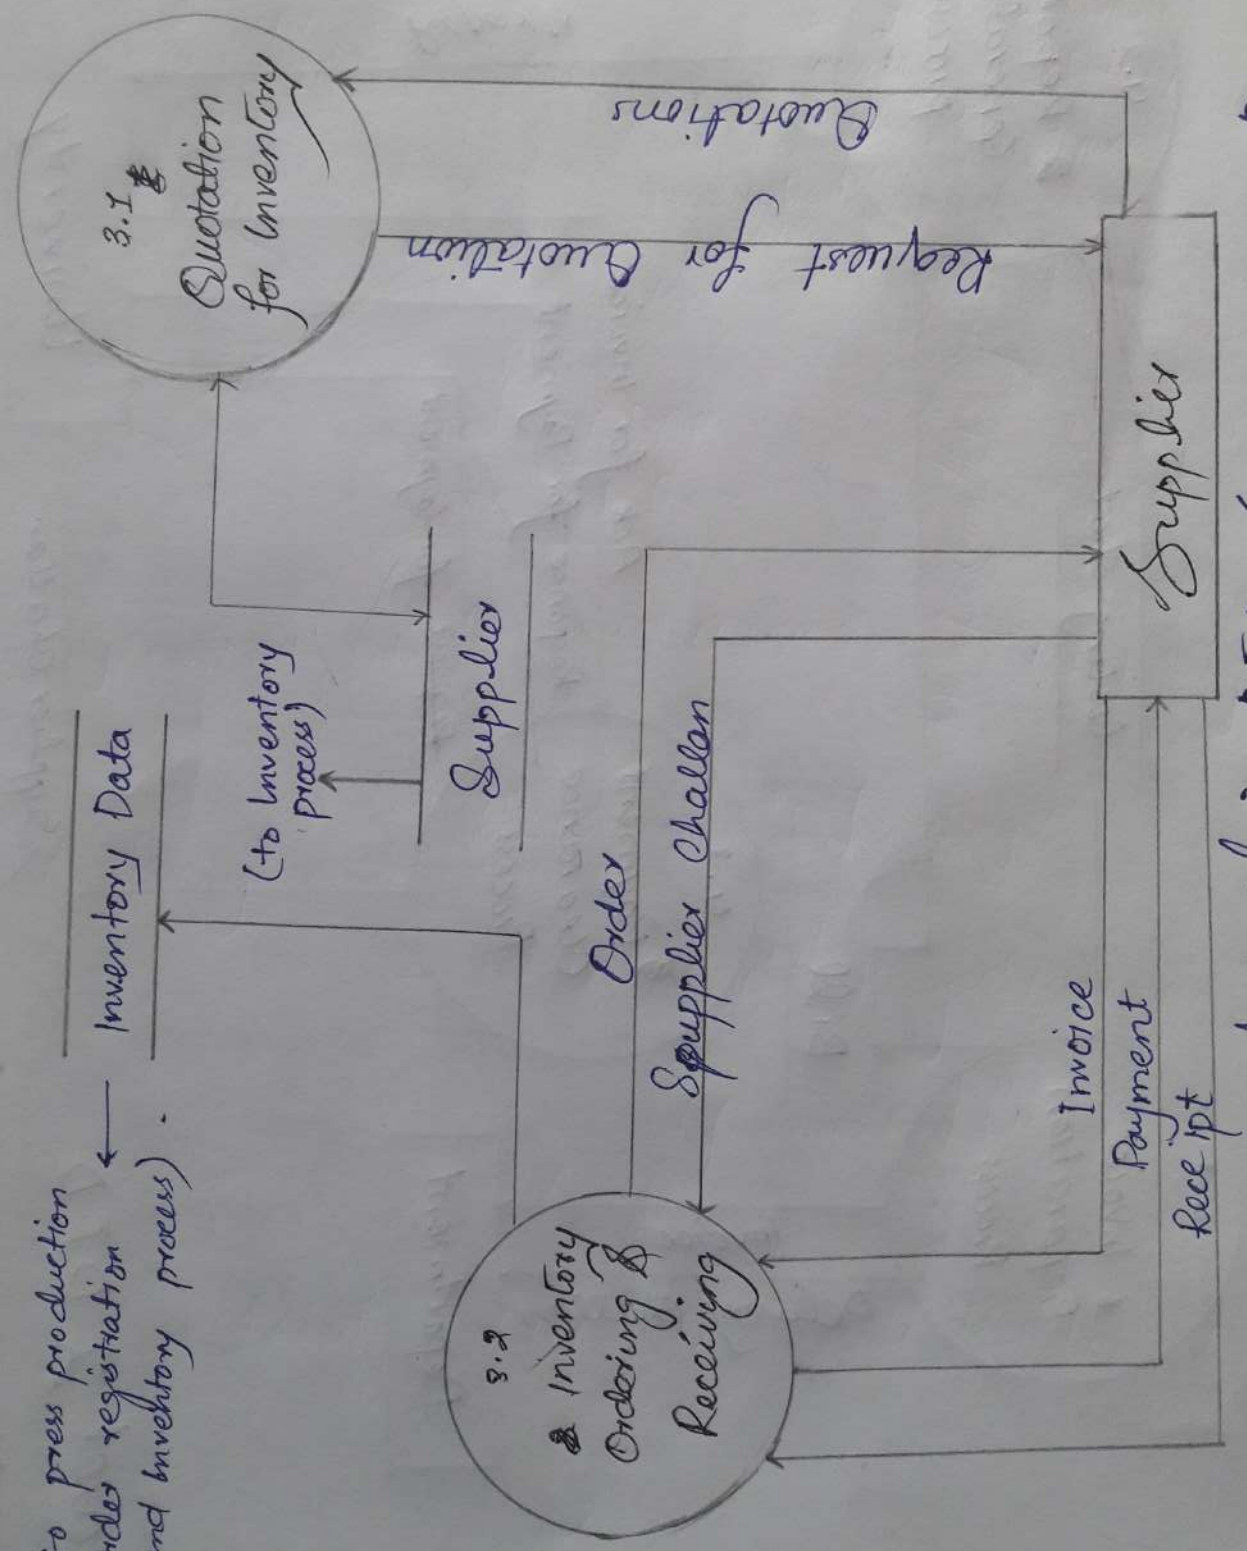 to press production
order registration
and inventory process).
Inventory Data
(to Inventory
process)
Supplier
3.1
Quotation
for Inventory
Quotations
Request for Quotation
Order
Supplier Challan
3.2
Inventory
Ordering &
Receiving
Invoice
Payment
Receipt
Supplier